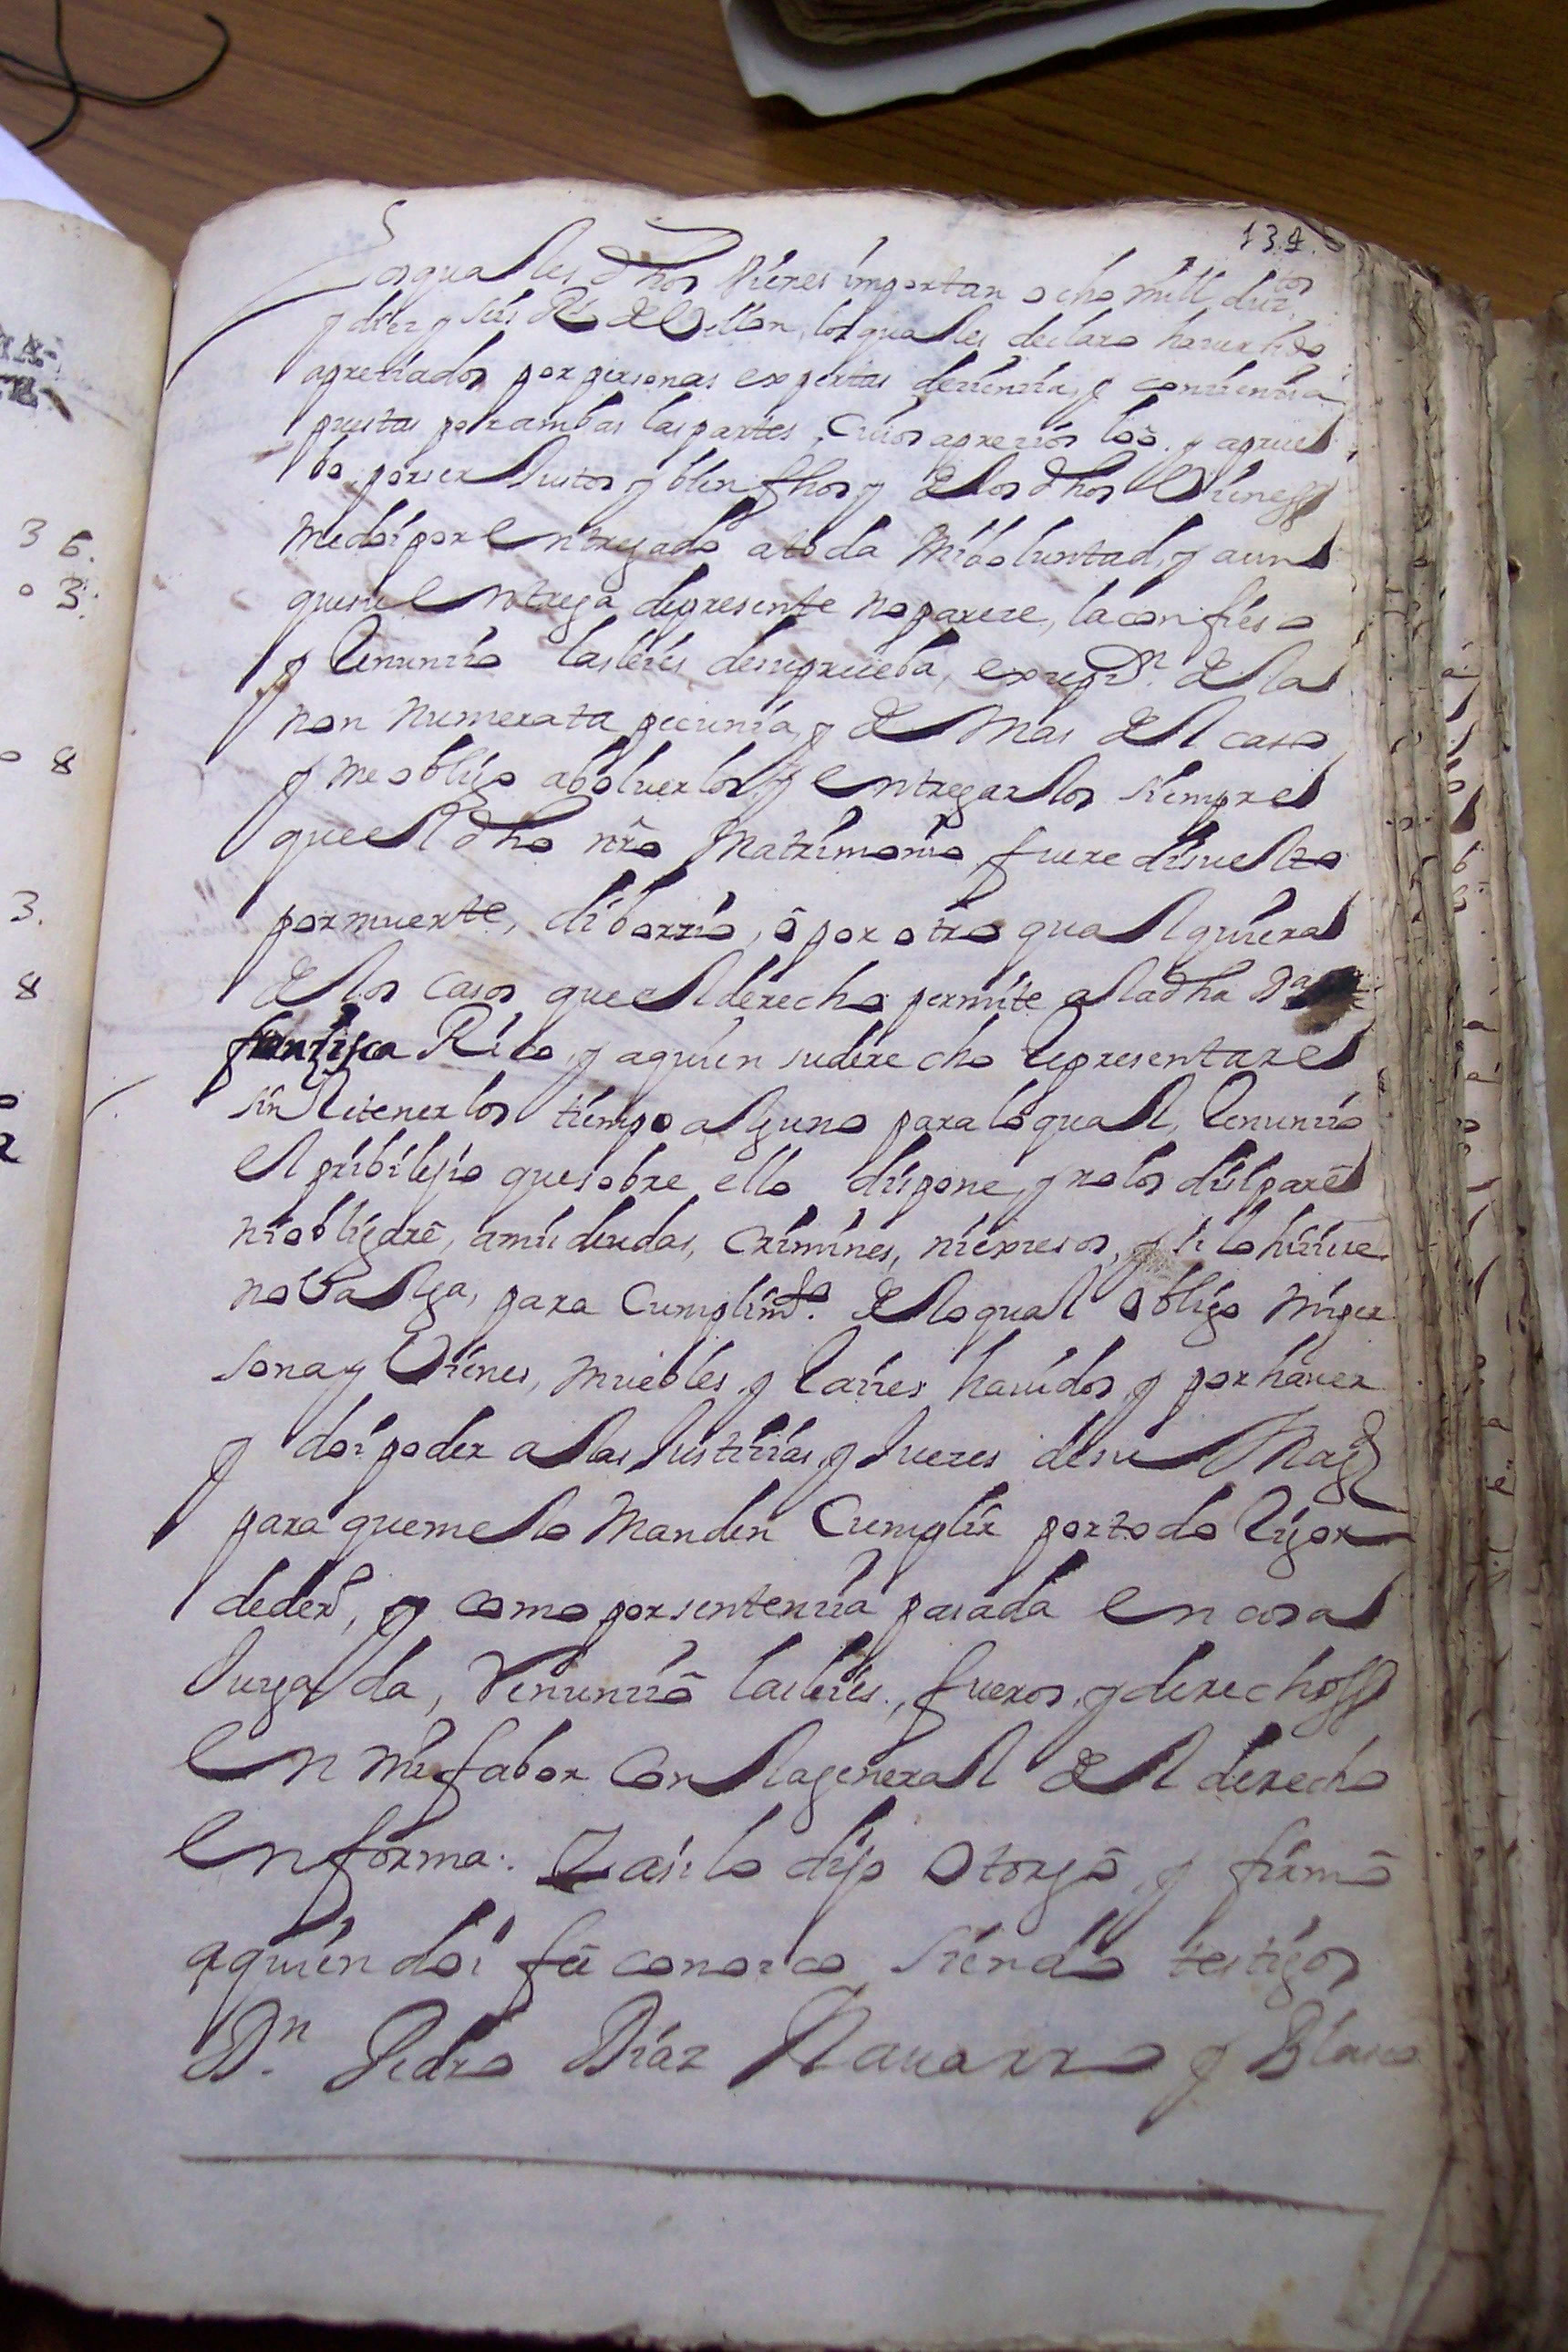 139.
Los quales dhos Vienes importan ocho mill duz.tos
y diez y seis Rs de Vellon, los quales declaro haver sido
apreciados por personas expertas de ciencia, y conciencia
puestas por ambas las partes, cuios aprecios loo. y aprue
bo, por ser Justos y bien fhos y de los dhos Vienes
me doi por entregado a toda mi boluntad, y aun
que su entrega de presente no parece, la confieso
y Renuncio las leies de su prueba, excepzn. de la
non numerata pecunia, y de mas del caso
y me obligo a bolverlos, y entregarlos siempre
que el dho nro Matrimonio fuere disuelto
por muerte, diborzio, ō por otro qualquiera
de los casos que el derecho permite a la dha Da
franzisca Rico, y a quien su derecho Representare
sin Retenerlos tiempo alguno para lo qual, Renuncio
el pribilejio que sobre ello dispone, y no los disiparē
ni obligarē, a mis deudas, crimines, ni exzesos, y si lo hiziere
no Valga, para Cumplimto. de lo qual obligo mi per
sona y Vienes, muebles y Raizes havidos y por haver
y doi poder a las Justicias, y Juezes de su Magd
para que me lo manden Cumplir por todo Rigor
de dero, y como por sentencia pasada en cosa
Juzgada, Renunciō las leies, fueros, y derechos
en mi fabor con la general del derecho
en forma. Y asi lo dijo otorgō, y firmō
a quien doi fē conozco siendo testigos
Dn. Pedro Diaz Navarro y Blasco
3 6.
0 3.
0 8
3.
8